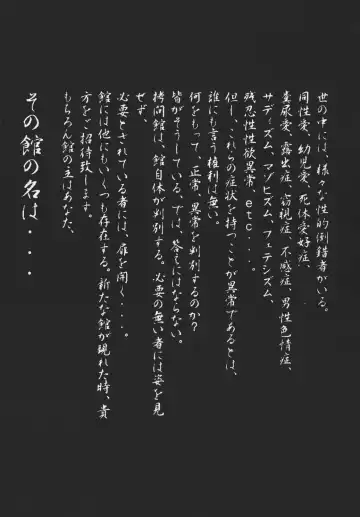 世の中には、様々な性的倒錯者がいる。
同性愛、幼児愛、死体愛好症、
糞尿愛、露出症、窃視症、不感症、男性色情症、
サディズム、マゾヒズム、フェテシズム、
残忍性性欲異常、etc・・・。
但し、これらの症状を持つことが異常であるとは、
誰にも言う権利は無い。
何をもって、正常、異常を判別するのか？
皆がそうしている、では、答えにはならない。
拷問館は、館自体が判別する。必要の無い者には姿を見
せず、
必要とされている者には、扉を開く・・・。
館には他にもいくつも存在する。新たな館が現れた時、貴
方をご招待致します。
もちろん館の主はあなた、
その館の名は・・・・